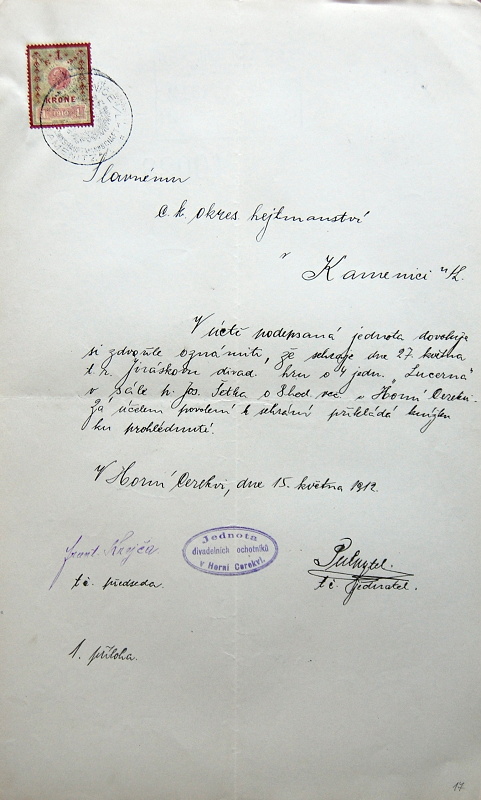 1
KRONE
Slavnému
c. k. okres. hejtmanství
v
Kamenici n/L.
V úctě podepsaná jednota dovoluje
si zdvořile oznámiti, že sehraje dne 27. května
t. r. Jiráskovu divad. hru o 4 jedn. "Lucerna"
v sále p. Jos. Fetka o 8 hod. več. v Horní Cerekvi.
Za účelem povolení k sehrání přikládá knížku
ku prohlédnutí.
V Horní Cerekvi, dne 15. května 1912.
Frant Krejča
Jednota
divadelních ochotníků
v Horní Cerekvi.
t. č. předseda.
t. č. jednatel.
1. příloha.
17